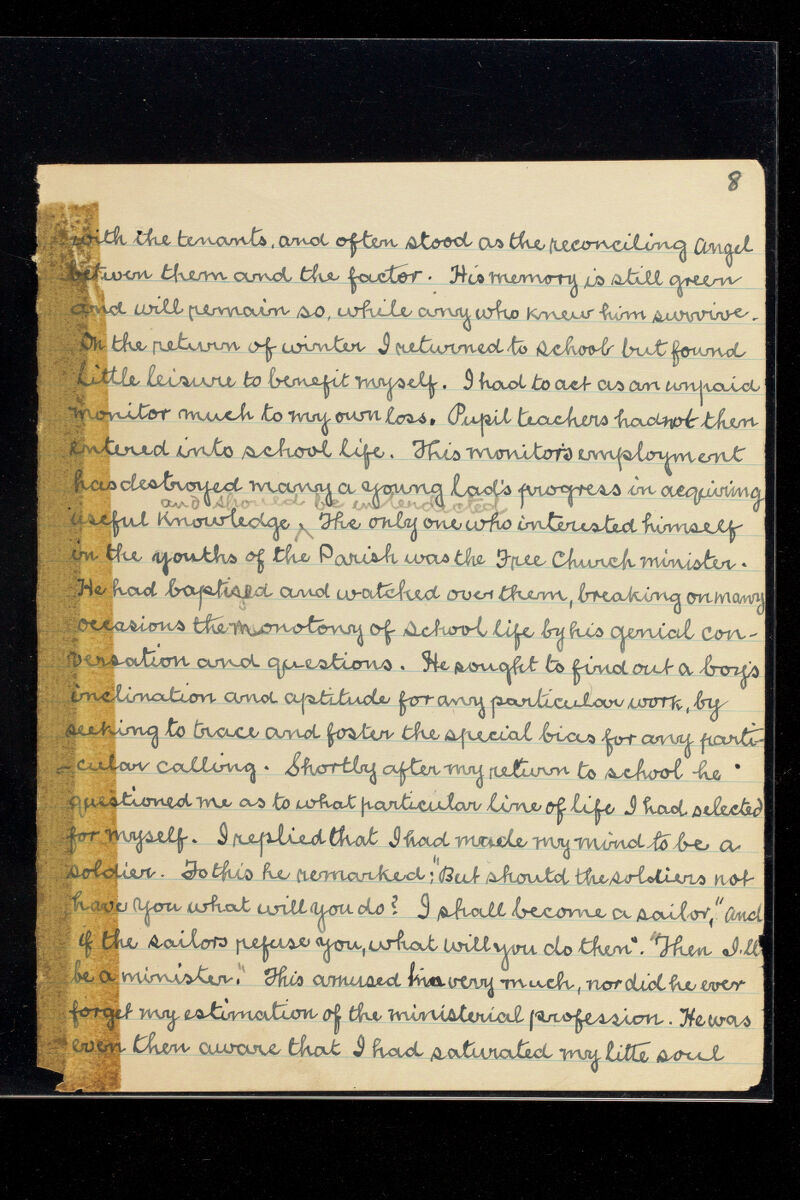 8
with the tenants, and often stood as the reconciling Angel
betwen them and the factor. His memory is still green
and will remain so, while any who knew him survive.
On the return of winter I returned to school but found
little leisure to benefit myself. I had to act as an unpaid
monitor much to my own loss. Pupil teachers had not then
entered into school life. This monitor's employment
has destroyed many a young lad's progress in acquiring
and should be interdicted
useful Knowledge. The only one who interested himself
in the youths of the Parish was the Free Church minister.
He had baptised and watched over them, breaking on many
occasions the monotony of school life by his genial con-
versation and questions. He sought to find out a boy's
inclination and aptitude for any particular work, by
seeking to trace and foster the special bias for any parti-
-cular calling. Shortly after my return to school he
questioned me as to what particular line of life I had selected
for myself. I replied that I had made my mind to be a
soldier. To this he remarked: "But should the soldiers not
have you what will you do? I shall become a sailor," and
if the sailors refuse you, what will you do then". "Then I'll
be a minister." This amused him very much, nor did he ever
forget my estimation of the ministerial profession. He was
even then aware that I had saturated my litte soul